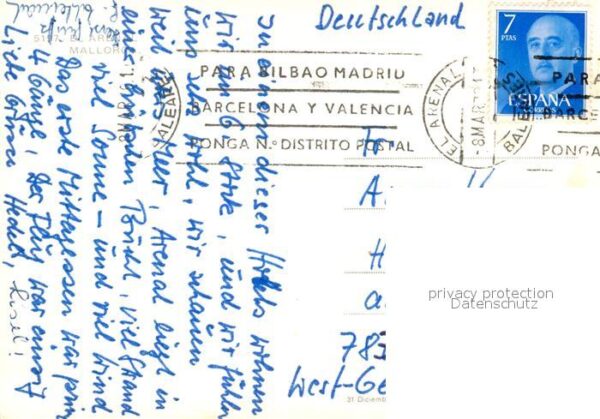 Deutschland
7
PTAS
ESPAÑA
CORREOS
PARA BILBAO MADRID
BARCELONA Y VALENCIA
PONGA N.º DISTRITO POSTAL
EL ARENAL
-8 MAR
BALEARES
PARA
BARCE
PONGA
BALEARES
8 MAR
MALLORCA
Liebe Hedel, Liesel!
4 Gänge! Der Flug war
Das erste Mittagessen war prima
viel Sonne - und viel Wind
Bucht, viel Strand
weil Meer, Arenal liegt in
uns sehr wohl, wir schauen
wir 6 Stck, und wir fühlen
In einem dieser Hotels wohnen
Fr
A
H
a
785
West-Ge
31 Diciem
privacy protection
Datenschutz